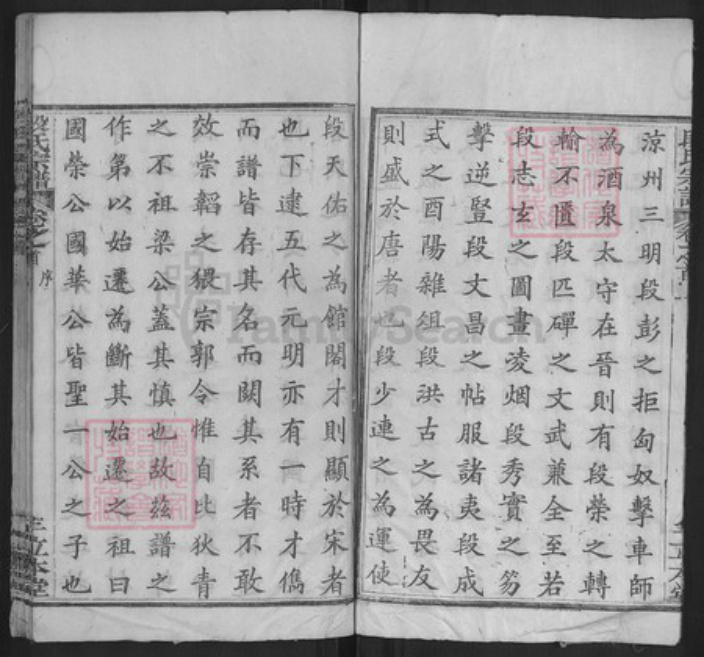 涼州三明段彭之拒匈奴擊車師
為酒泉太守在晉則有段榮之轉
輸不匱段匹磾之文武兼全至若
段志玄之圖畫凌烟段秀實之笏
擊逆豎段文昌之帖服諸夷段成
式之酉陽雜俎段洪古之為畏友
則盛於唐者也段少連之為運使
段天佑之為館閣才則顯於宋者
也下逮五代元明亦有一時才儁
而譜皆存其名而闕其系者不敢
效崇韜之猥宗郭令惟自比狄青
之不祖梁公蓋其慎也故茲譜之
作第以始遷為斷其始遷之祖曰
國榮公國華公皆聖一公之子也
段氏宗譜
卷之首
序
立本堂
FamilySearch